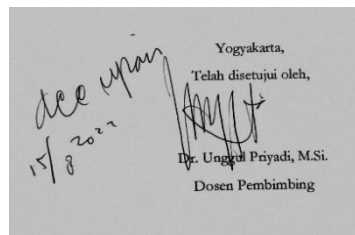 Yogyakarta,
Telah disetujui oleh,
acc ujian
15/8 2022
Dr. Unggul Priyadi, M.Si.
Dosen Pembimbing